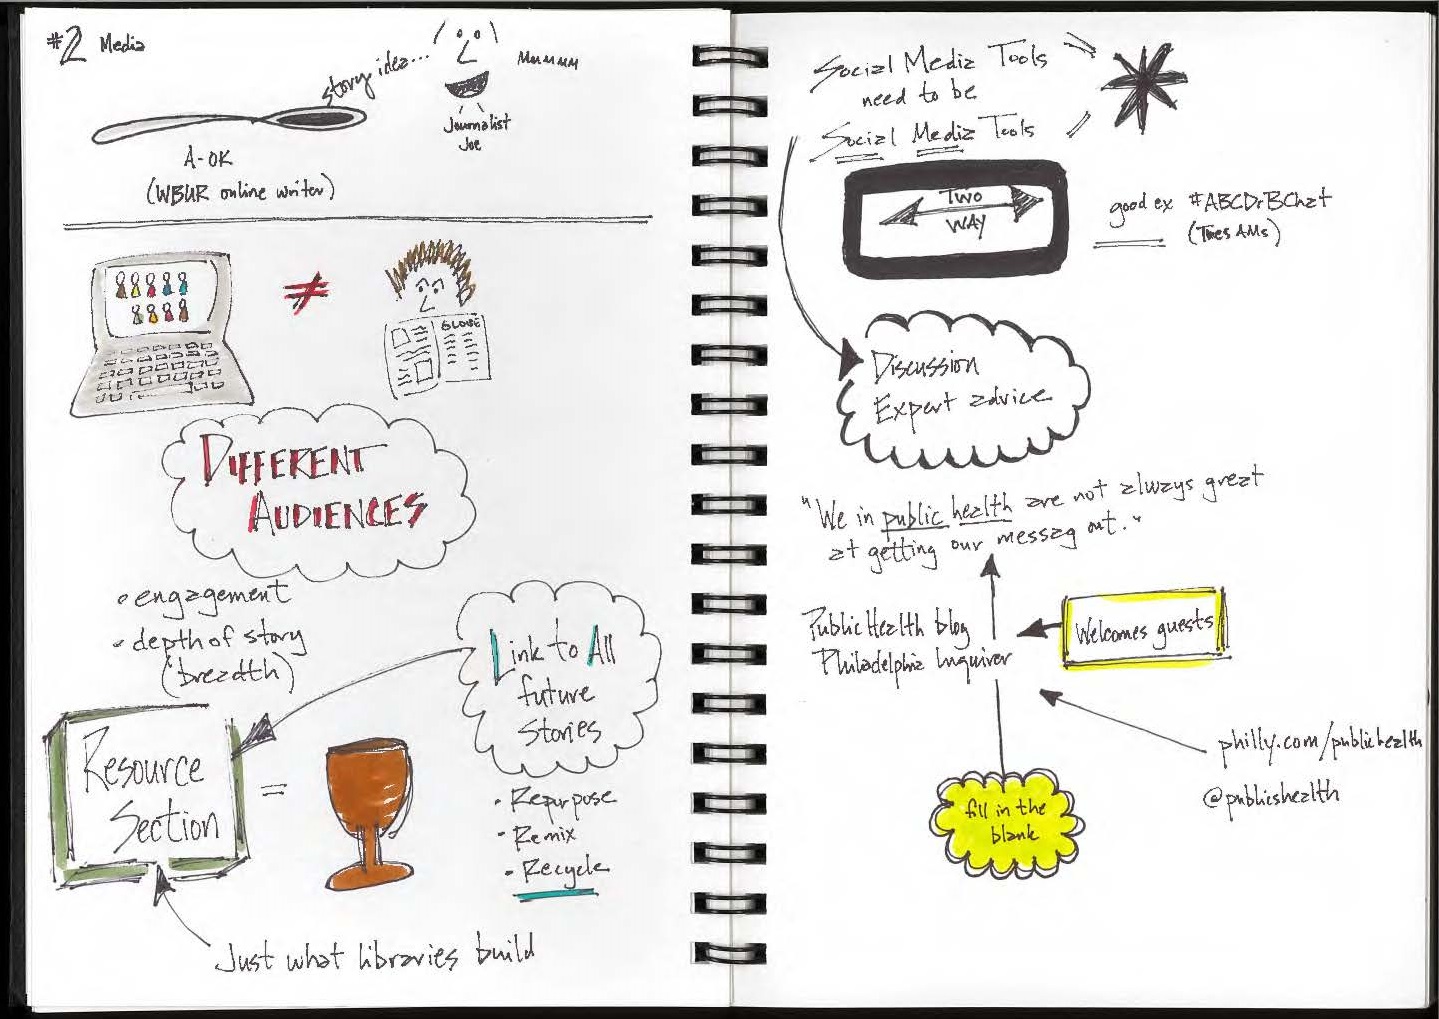 #2 Media
story idea...
Mmmmm
Journalist
Joe
A-OK
(WBUR online writer)
≠
GLOBE
DIFFERENT
AUDIENCES
• engagement
• depth of story
(breadth)
Link to All
future
Stories
Resource
Section
=
• Repurpose
• Remix
• Recycle
Just what libraries build
Social Media Tools
need to be
Social Media Tools
TWO
WAY
good ex #ABCDrBChat
(Tues AMs)
Discussion
Expert advice
"We in public health are not always great
at getting our messag out."
Public Health blog
Philadelphia Inquirer
Welcomes guests
philly.com/publichealth
@publicshealth
fill in the
blank